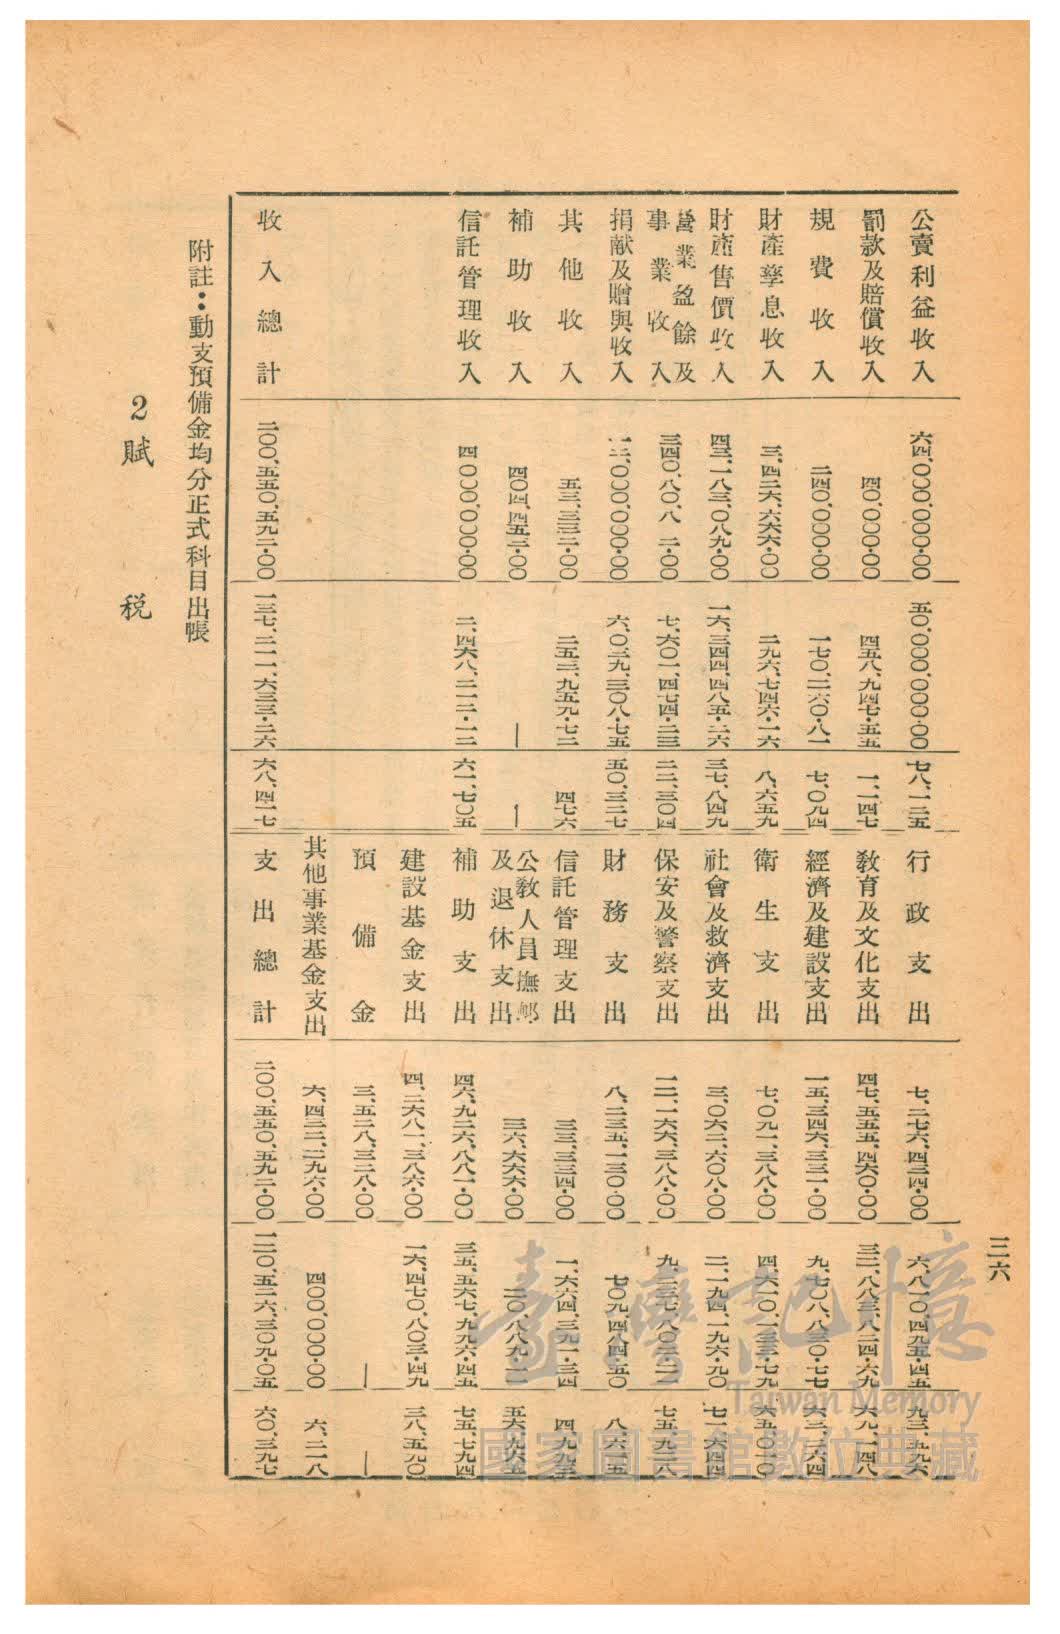 三六
公賣利益收入 六四、〇〇〇、〇〇〇・〇〇 五〇、〇〇〇、〇〇〇・〇〇 七八、一二五 行政支出 七、二七六、四三四・〇〇 六、八一〇、四九五・四五 九三、九九六
罰款及賠償收入 四〇、〇〇〇・〇〇 四五八、九四七・五五 一、一四七 教育及文化支出 四七、五五五、四六〇・〇〇
規費收入 二四〇、〇〇〇・〇〇 一七〇、二六〇・八一 七〇、九四 經濟及建設支出 一五、三四六、三三一・〇〇 九、七〇八、八三〇・七七
財產孳息收入 三、四二六、六六六・〇〇 二九六、七四六・一六 八、六五九 衛生支出 七、〇九一、三八八・〇〇 四、六一〇、一三三・七九
財產售價收入 四三、一八三、〇八九・〇〇 一六、三四四、四八五・二六 三七、八四九 社會及救濟支出 三、〇六二、六〇八・〇〇 二、一九四、一九六・九〇
營業盈餘及事業收入 三四〇、八〇八二・〇〇 七、六〇一、四七四・二三 二二、三〇四 保安及警察支出 一二、一六六、三八八・〇〇
捐献及贈與收入 一二、〇〇〇、〇〇〇・〇〇 六、〇二九、三〇八・七五 五〇、三二七 財務支出 八、二三五、一三〇・〇〇 七〇九、四八四・五〇 八、六一五
其他收入 五三、三三二・〇〇 二五二、九五九・七二 四七六 信託管理支出 三三、三三四・〇〇 一、六六四、三九一・三四 四、九九三
補助收入 四〇四、四五三・〇〇 — — 公教人員撫卹及退休支出 三六、六六六・〇〇 五六、九六五
信託管理收入 四〇〇〇、〇〇〇・〇〇 二、四六八、二一二・一二 六一、七〇五 補助支出 四六、九二六、八八一・〇〇 三五、五六七、九九六・四五 七五、七九四
建設基金支出 四、二六八一、三八六・〇〇 一六、四七〇、八〇三・四九 三八、五九〇
預備金 三、五二八、三二八・〇〇 — —
其他事業基金支出 六、四三二、二九六・〇〇 四〇〇、〇〇〇・〇〇 六、二一八
收入總計 二〇〇、五五〇、五九二・〇〇 一三七、二一一、六三三・二六 六八、四一七 支出總計 二〇〇、五五〇、五九二・〇〇 一二〇、五二六、三〇九・〇五 六〇、三九七
附註：動支預備金均分正式科目出帳
2賦稅
臺灣記憶
Taiwan Memory
國家圖書館數位典藏